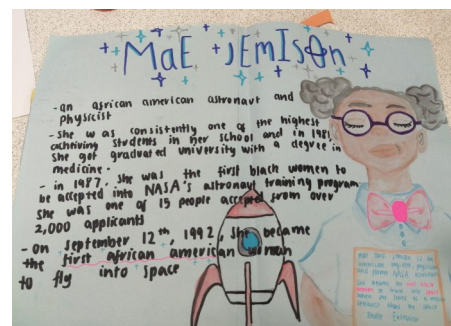 MaE JEmISon
- an african american astronaut and
physicist
- she was consistently one of the highest
achiving students in her school and in 1981
she got graduated university with a degree in
medicine.
- in 1987, she was the first black women to
be accepted into NASA's astronaut training program
she was one of 15 people accepted from over
2,000 applicants
- on september 12th, 1992, she became
the first african american woman
to fly into space